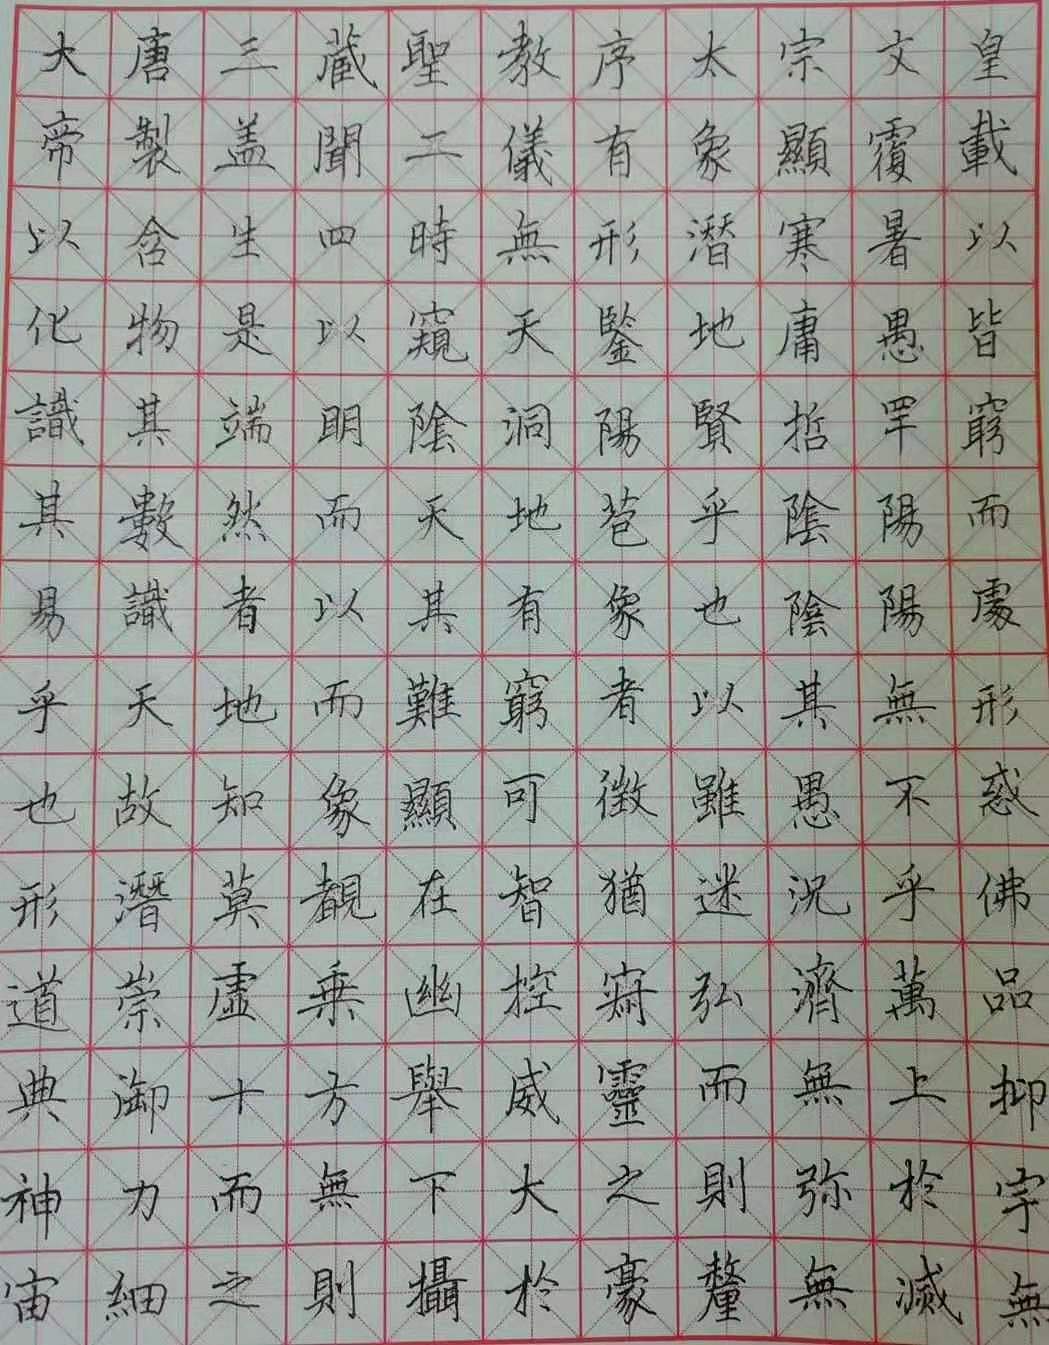 大唐三藏聖教序太宗文皇
帝製盖聞二儀有象顯覆載
以含生四時無形潛寒暑以
化物是以窺天鑒地庸愚皆
識其端明陰洞陽賢哲罕窮
其數然而天地苞乎陰陽而
易識者以其有象也陰陽處
乎天地而難窮者以其無形
也故知象顯可徵雖愚不惑
形潛莫覩在智猶迷況乎佛
道崇虛乗幽控寂弘濟萬品
典御十方舉威靈而無上抑
神力而無下大之則弥於宇
宙細之則攝於豪釐無滅無